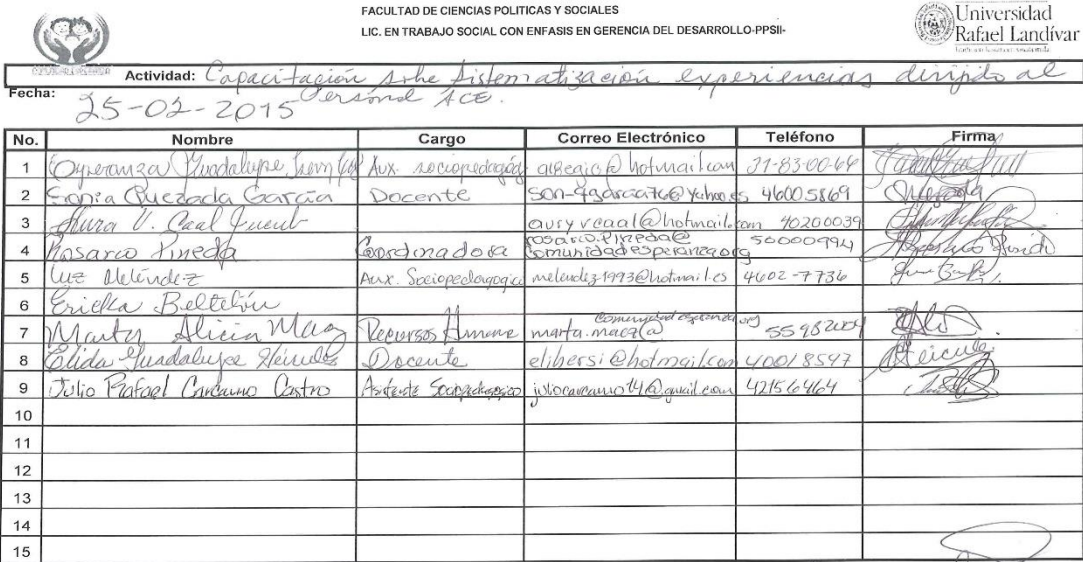 FACULTAD DE CIENCIAS POLITICAS Y SOCIALES
LIC. EN TRABAJO SOCIAL CON ENFASIS EN GERENCIA DEL DESARROLLO-PPSII-
Universidad
Rafael Landívar
Actividad: Capacitación sobre Sistematización experiencias dirijido al
Personal ACE.
Fecha: 25-02-2015
No. Nombre Cargo Correo Electrónico Teléfono Firma
1 Esperanza Guadalupe Aux. sociopedagóg @hotmail.com 31-83-00-64
2 Sonia Quezada García Docente 46005869
3 V. Caal aury vcaal@hotmail.com 40200039
4 Rosario Pineda Coordinadora rosario.pineda@comunidadesperanza.org
5 Luz Meléndez Aux. Sociopedagogico melendez1993@hotmail.es 4602-7736
6 Ericka
7 Alicia Recursos Humano marta.maaz@comunidadesperanza.org
8 Elida Guadalupe Docente elibersi@hotmail.com 40018597
9 Julio Rafael Carcamo Castro Asistente Sociopedagogico juliocarcamo14@gmail.com 42156464
10
11
12
13
14
15